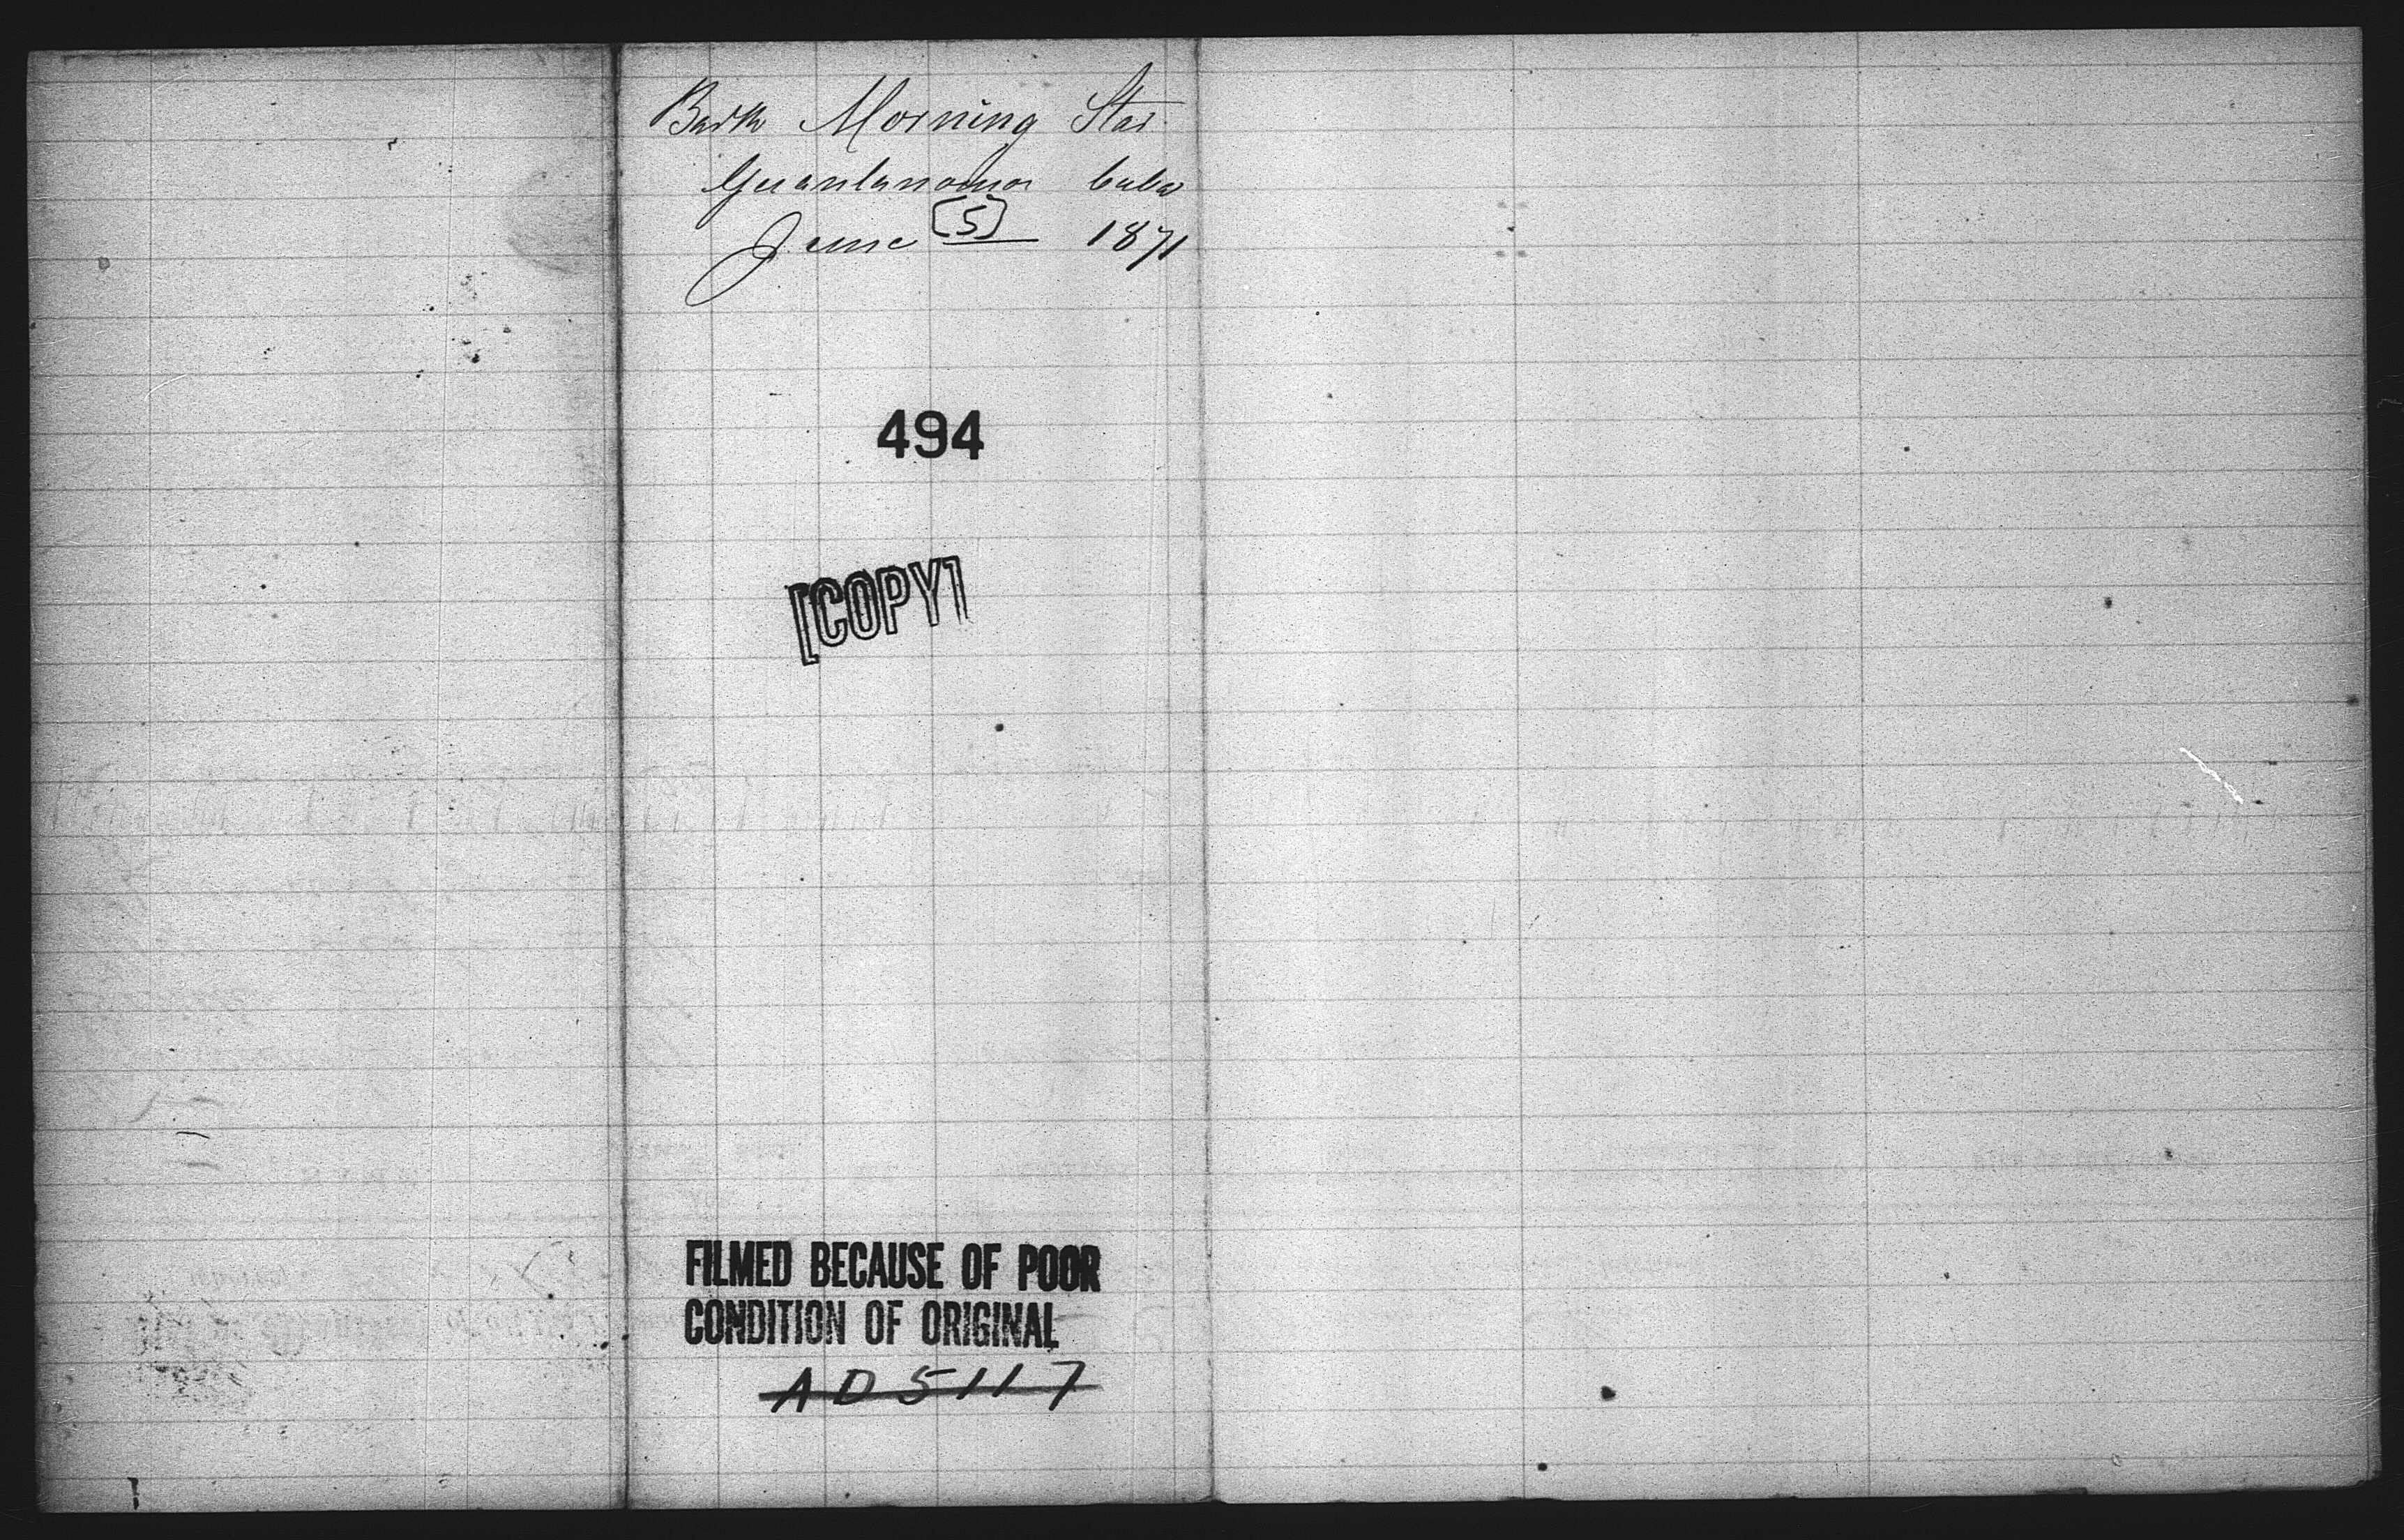 Bark Morning Star
Guantanamo Cuba
June [5] 1871
494
[COPY]
FILMED BECAUSE OF POOR
CONDITION OF ORIGINAL
AD5117